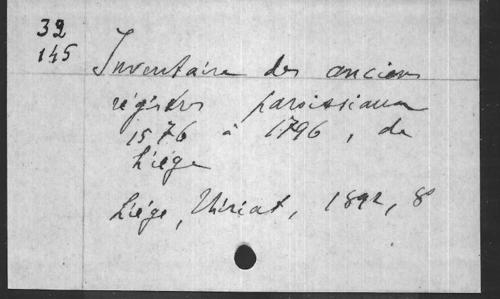 32
145
Inventaire des anciens
régistres paroissiaux
1576 à 1796, de
Liége
Liége, Thiriat, 1892, 8°